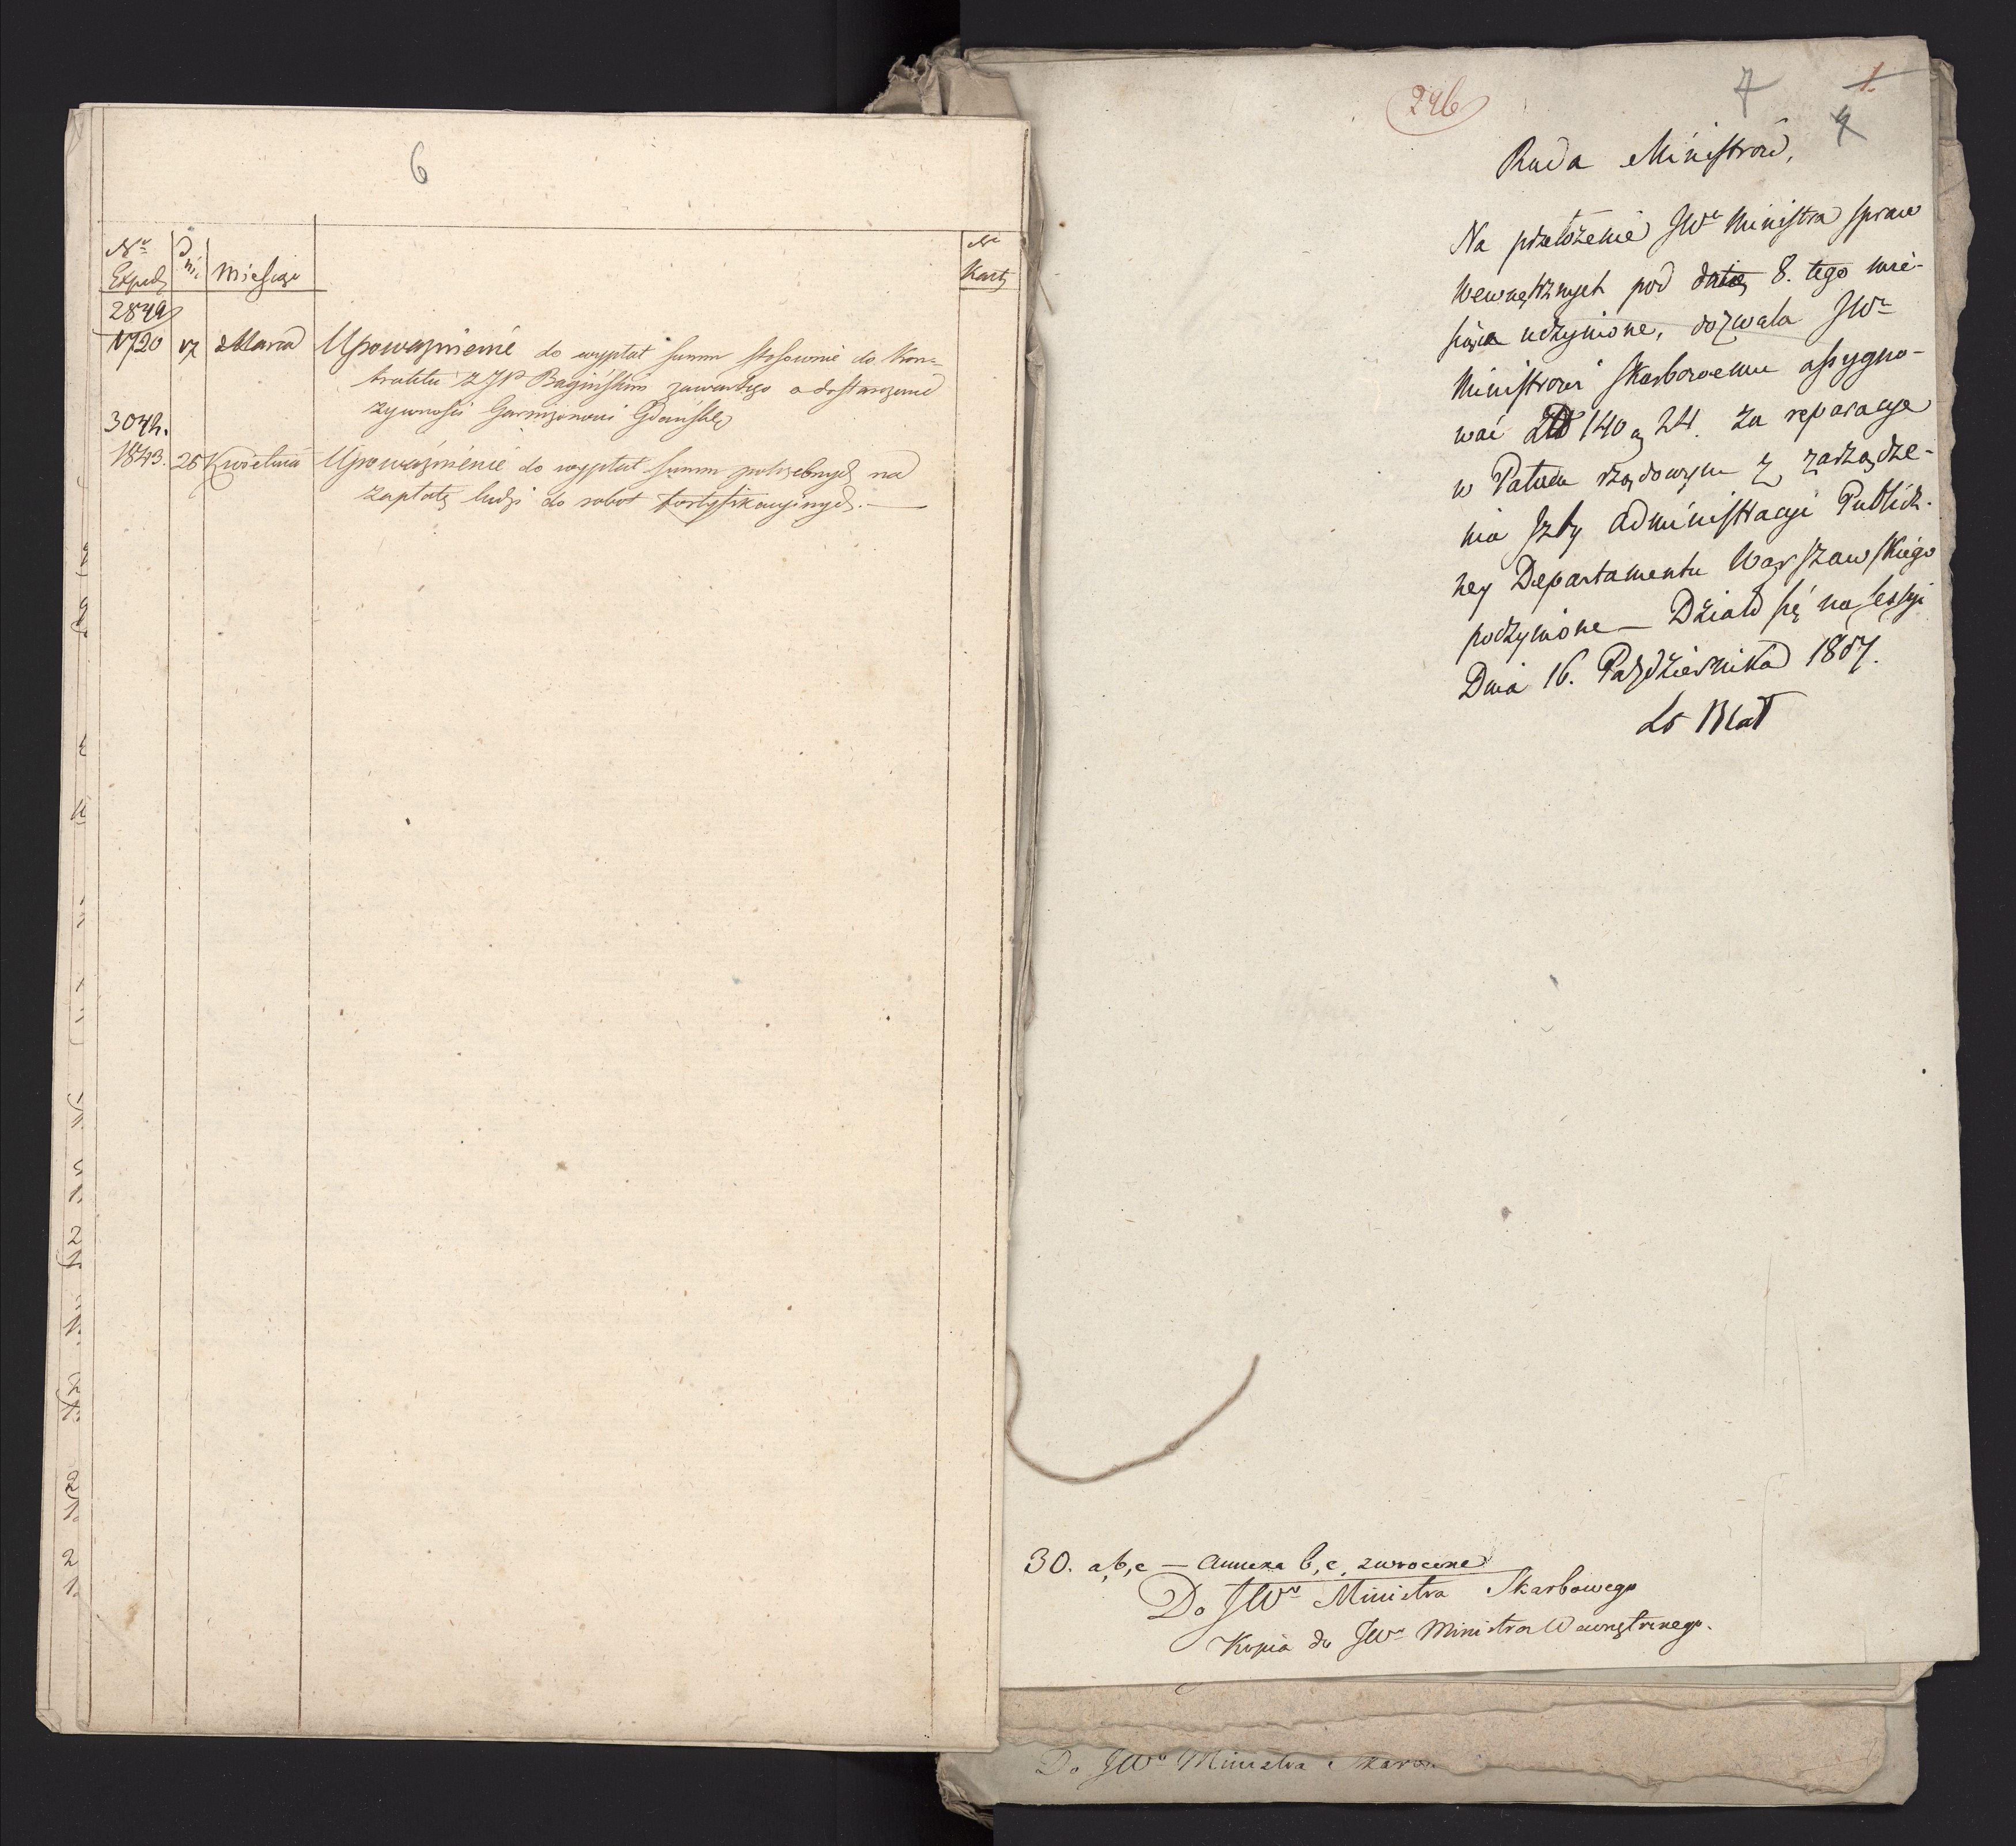 6
Nr
Exped
Dni
Miesiąc
Nr
Karty
2849
1720 17 Marca Upoważnienie do wypłat summ stosownie do Kon-
traktu z JP Bagińskim zawartego o dostarczenie
żywności Garnizonowi Gdańska
3042.
1843. 25 Kwietnia Upoważnienie do wypłat summ potrzebnych na
zapłatę ludzi do robot fortyfikacyinych.
246
7
1.
4
Rada Ministrow,
Na przełożenie JWo Ministra spraw
Wewnętrznych pod datą 8. tego mie-
siąca uczynione, dozwala JWu
Ministrowi Skarbowemu assygno-
wać 140 24. za reparacye
w Pałacu rządowym z zarządze-
nia Jzby Administracyi Publicz-
ney Departamentu Warszawskiego
poczynione — Działo się na Sessyi
Dnia 16. Października 1807.
30. a, b, c — annexa b, c, zwrocone
Do JWo Ministra Skarbowego
Kopia do JWo Ministra Wewnętrznego.
Do JWo Ministra Skarbo